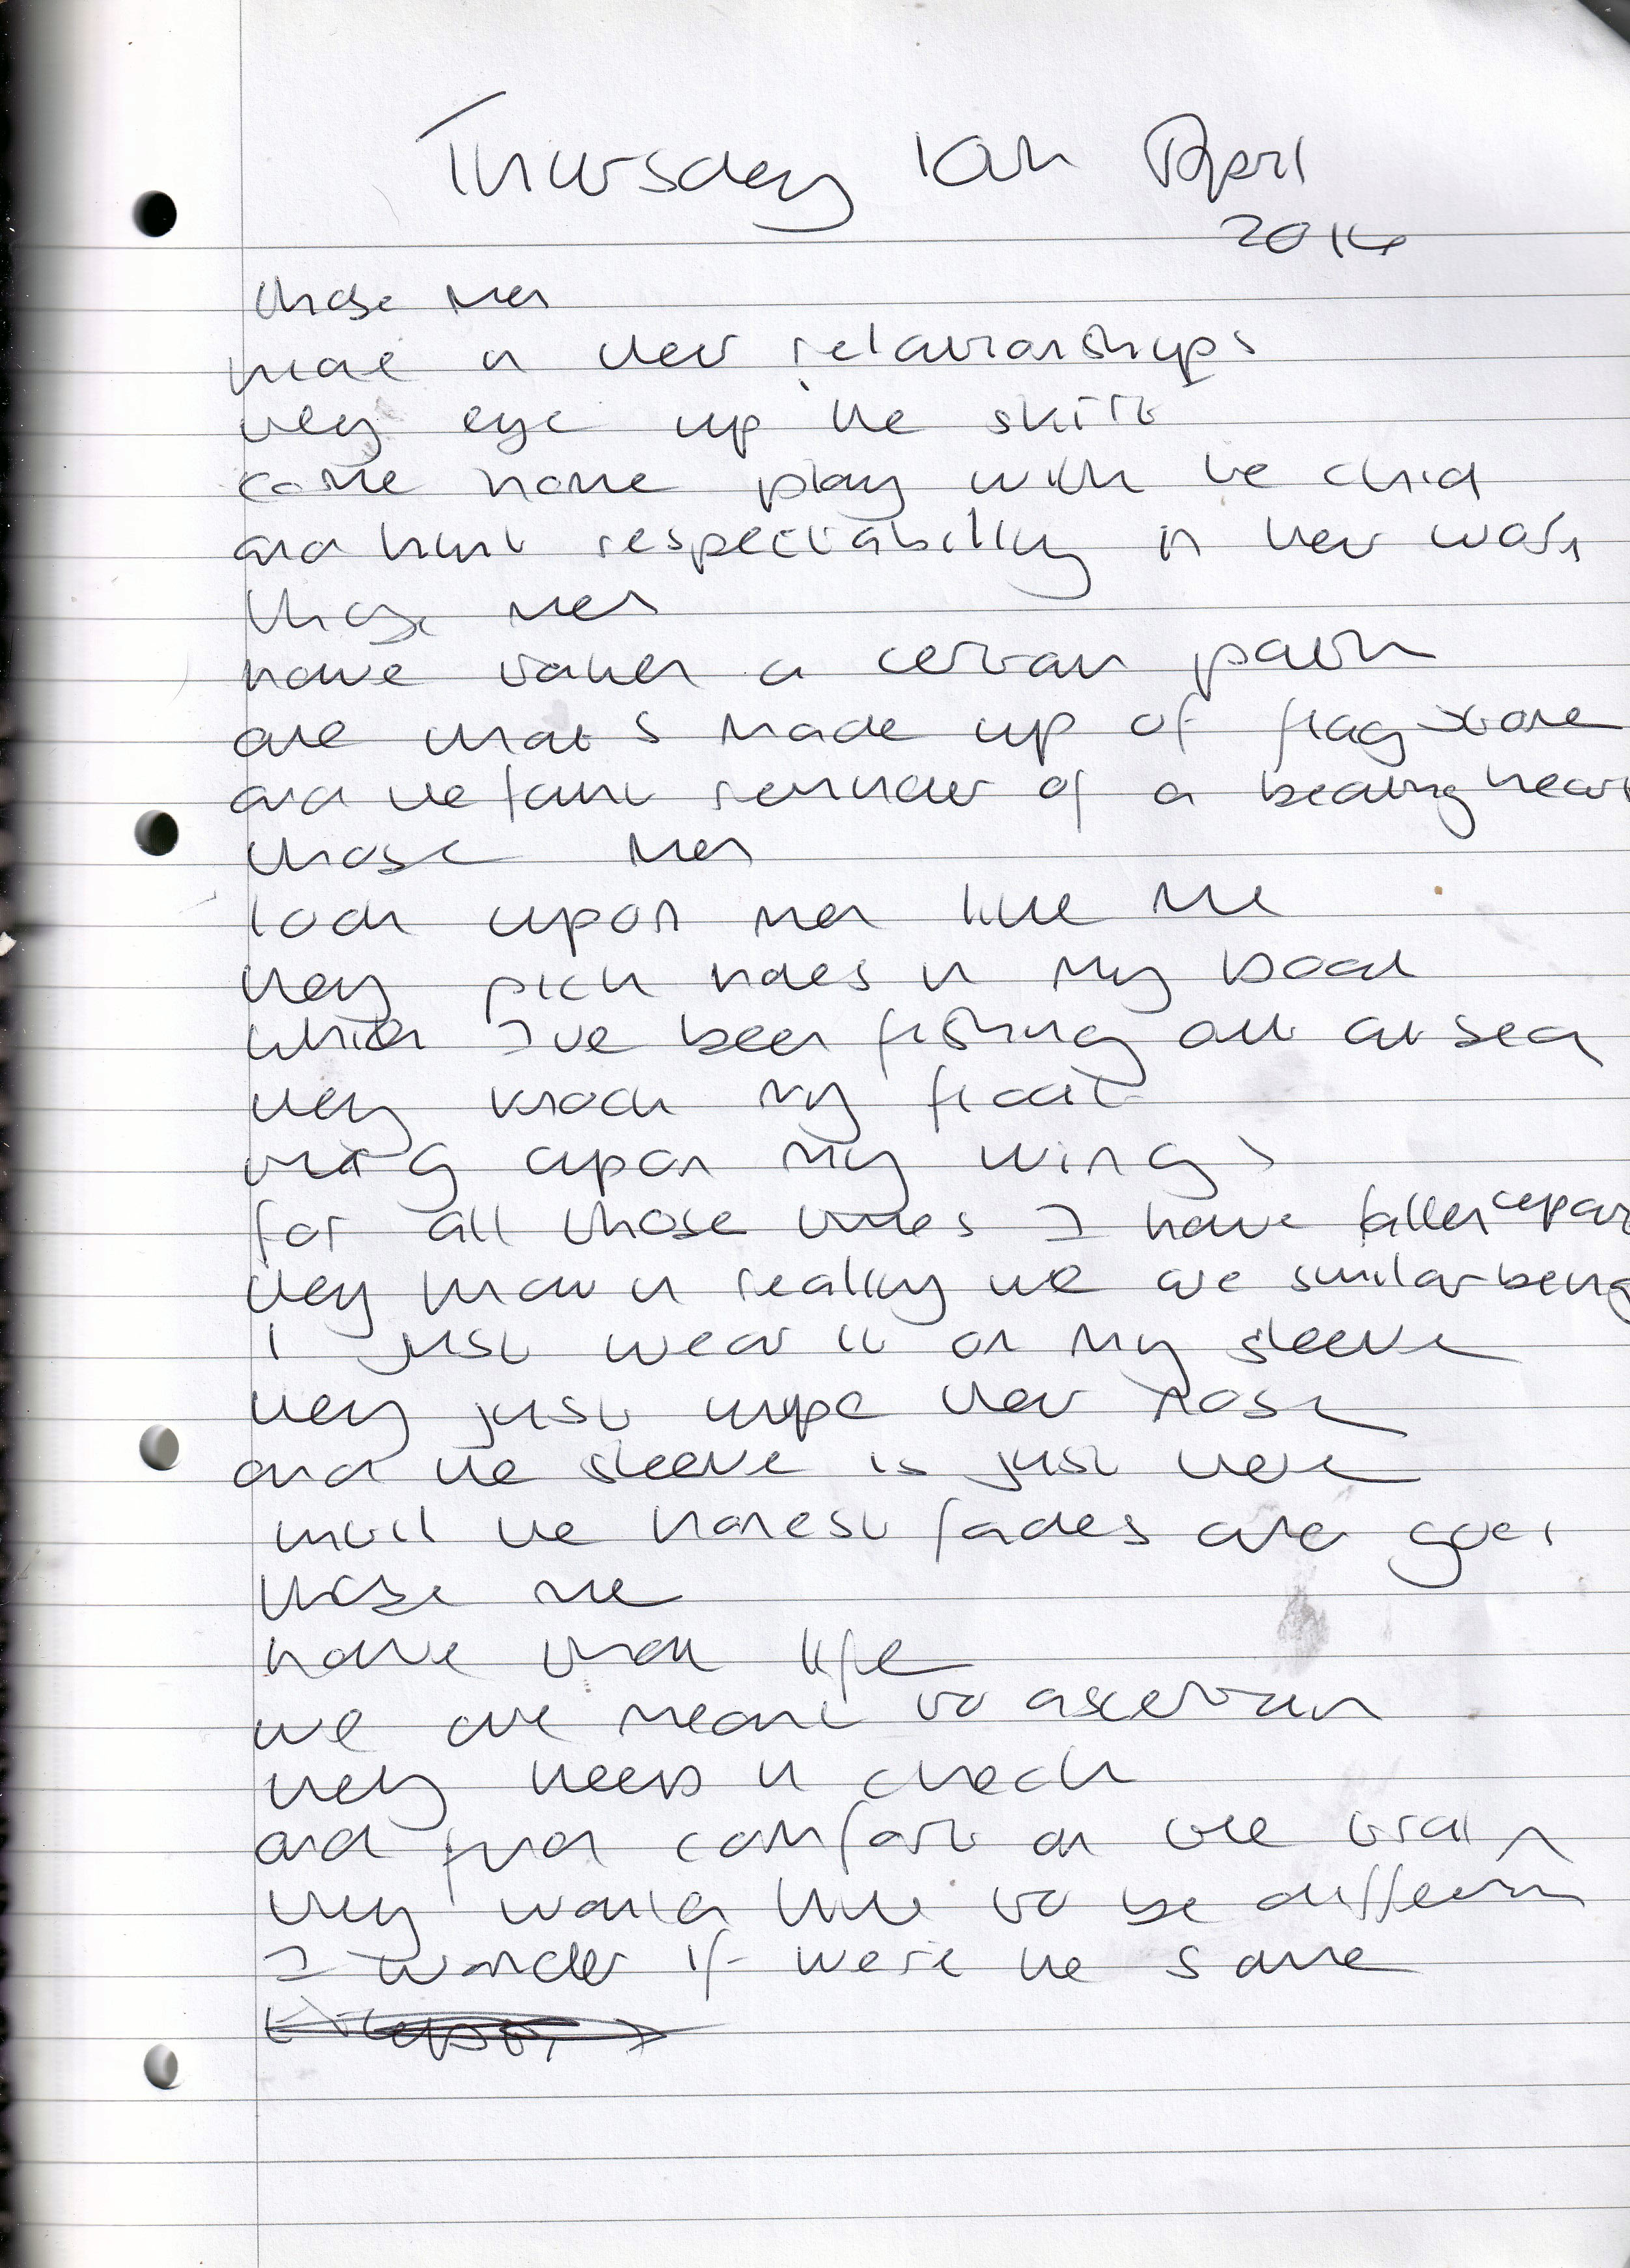 Thursday 10th April
2014
those men
in their relationships
they eye up the skirt
come home play with the child
and hunt respectability in their work
those men
have taken a certain path
one that's made up of flagstone
and the faint reminder of a beating heart
those men
look upon men like me
they pick holes in my boat
which I've been fishing out at sea
they knock my float
upon my wings
for all those times I have fallen upon
they know in reality we are similar being
I just wear it on my sleeve
they just wipe their nose
and the sleeve is just there
until the honest fades and goes
those men
have that life
we are meant to ascertain
they keep in check
and find comfort on the train
they would like to be different
I wonder if were the same